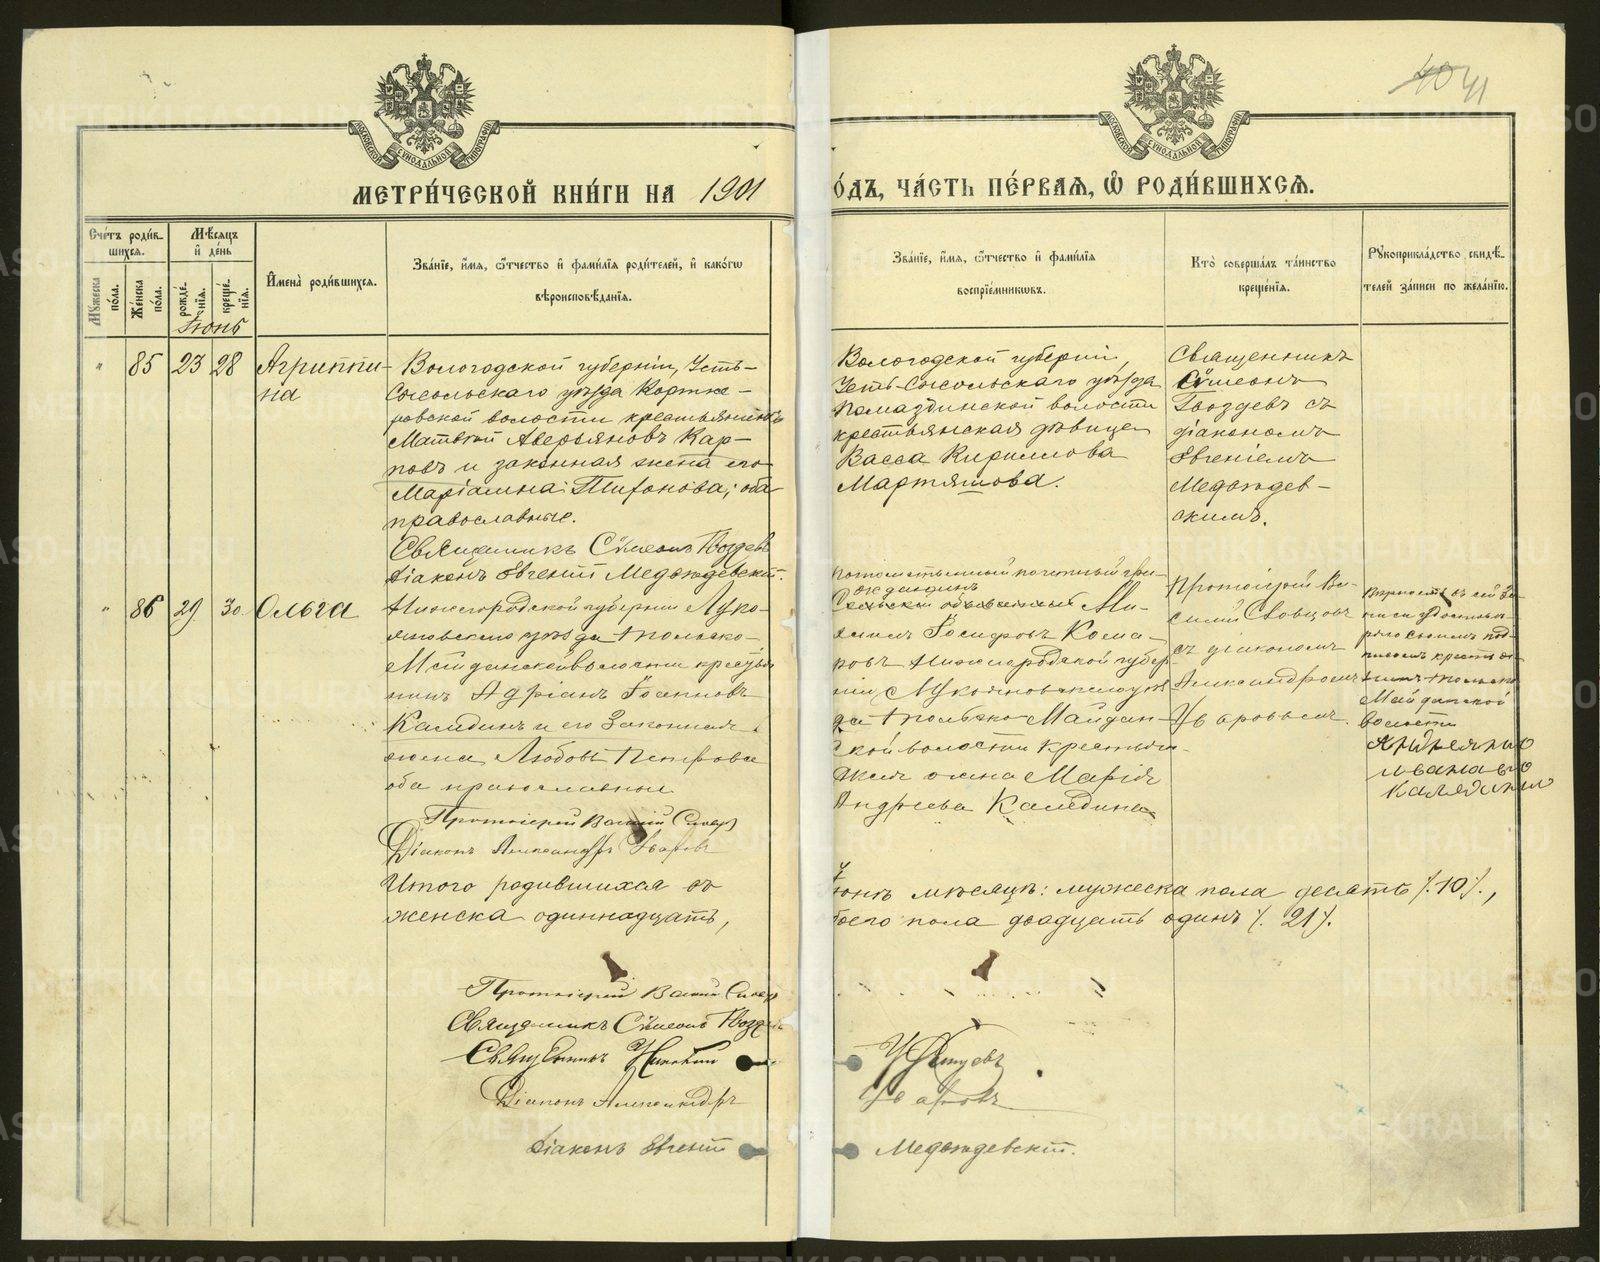 40 41
МОСКОВСКОЙ СѴНОДАЛЬНОЙ ТИПОГРАФІИ
МОСКОВСКОЙ СѴНОДАЛЬНОЙ ТИПОГРАФІИ
МЕТРИ́ЧЕСКОЙ КНИ́ГИ НА 1901
О́ДЪ, ЧА́СТЬ ПЕ́РВАЯ, Ѡ҆ РОДИ́ВШИХСЯ.
Сче́тъ роди́в-
шихся.
Му́жеска по́ла.
Же́нска по́ла.
Мѣ́сяцъ
и҆ де́нь
рожде́нїя.
креще́нїя.
Іюнь
И҆мена̀ роди́вшихся.
Зва́нїе, и҆́мя, ѻ҆́тчество и҆ фами́лїя роди́телей, и҆ како́гѡ
вѣроисповѣ́данїя.
Зва́нїе, и҆́мя, ѻ҆́тчество и҆ фами́лїя
воспрїе́мникѡвъ.
Кто̀ соверша́лъ та́инство
креще́нїя.
Рꙋкоприкла́дство свидѣ́-
телей за́писи по жела́нїю.
" 85 23 28 Агриппи-
на
Вологодской губерніи, Усть-
Сысольскаго уѣзда Кортке-
ровской волости крестьянинъ
Матвѣй Аверьяновъ Кар-
повъ и законная жена его
Маріамна Тифонова; оба
православные.
Священникъ Сѵмеонъ Гвоздевъ
Діаконъ Евгеній Медвѣдевскій.
Вологодской губерніи,
Усть-Сысольскаго уѣзда
Помаздинской волости
крестьянская дѣвица
Васса Кириллова
Мартюшова.
Священникъ
Сѵмеонъ
Гвоздевъ съ
діакономъ
Евгеніемъ
Медвѣдев-
скимъ.
" 86 29 30 Ольга
Нижегородской губерніи Луко-
яновскаго уѣзда Тольско-
Майданской волости крестья
нинъ Адріанъ
Каледин и его законная
жена Любовь Петрова
оба православные
Протоіерей Василій
Діаконъ Александръ Уваровъ
Потомственный почетный гра-
жданинъ
Ми-
хаилъ Кома-
ровъ Нижегородской губер-
ніи Лукояновскаго уѣз
да Тольско Майдан-
ской волости крестьян-
жена Марія
Андреева Каледина
Протоіерей Ва-
силій Словцовъ
съ діакономъ
Александромъ
Уваровымъ.
вѣрность сей за-
писи удостовѣ-
ряю своимъ под-
писомъ крестья-
нинъ Тольско
Майданской
волости
Итого родившихся въ
женска одиннадцать,
Іюнѣ мѣсяцѣ: мужеска пола десять /.10/.,
боего пола двадцать одинъ /. 21/.
Протоіерей Василій
Священникъ Сѵмеонъ Гвоздевъ
Священникъ
Діаконъ Александръ
Уваровъ
Діаконъ Евгеній
Медвѣдевскій.
METRIKI.GASO-URAL.RU